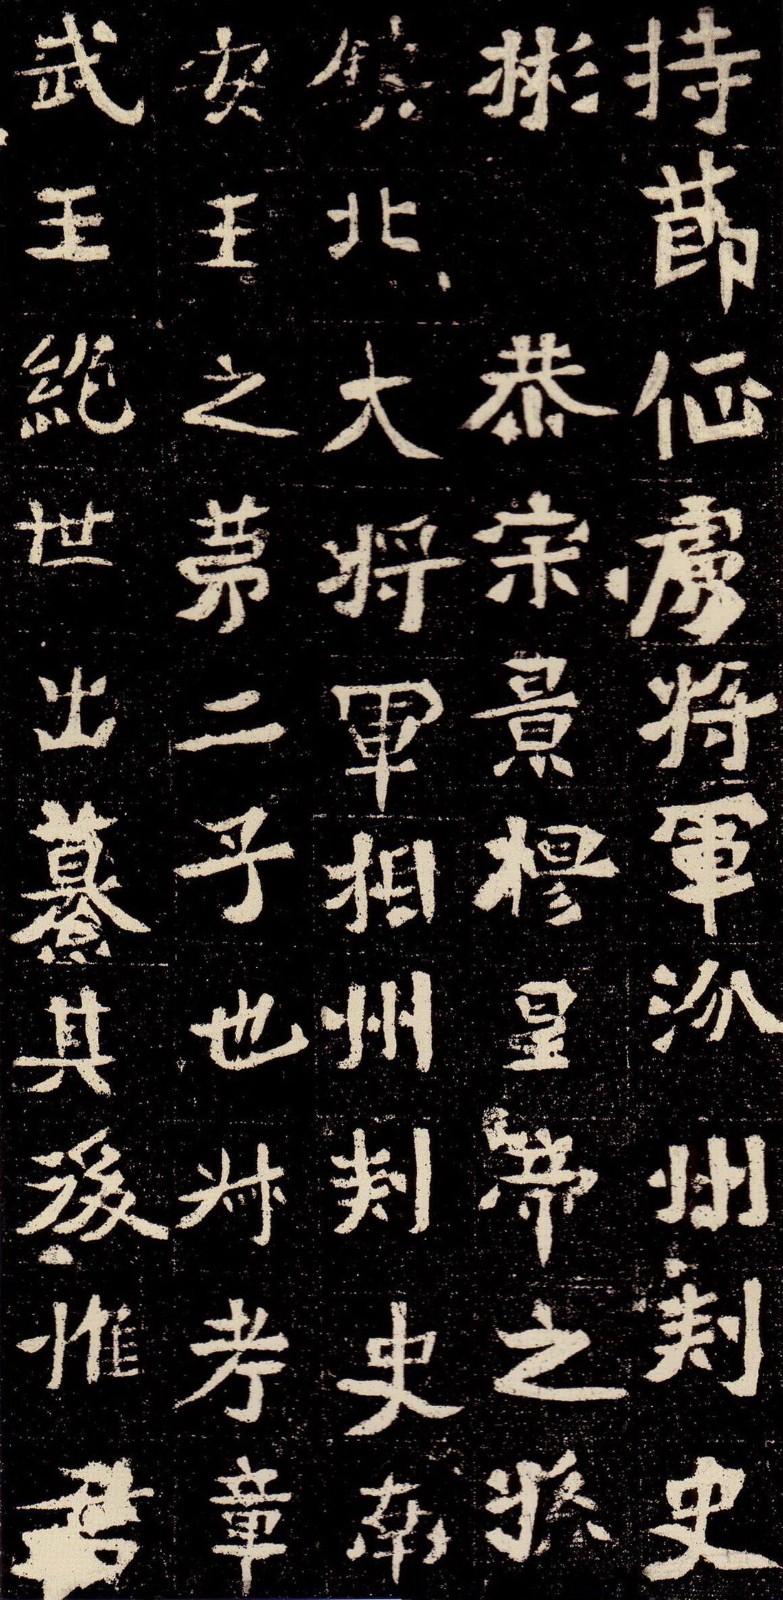 持節征虜将軍汾州刾史
彬 恭宗景穆皇帝之孫
鎮北大将軍相州刾史南
安王之苐二子也叔考章
武王絶世出纂其後惟君